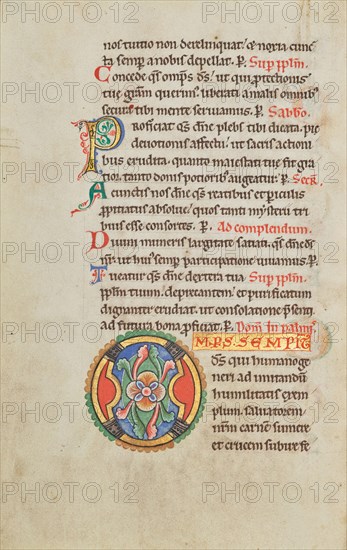 nos tuitio non derelinquat. et noxia cunc
ta semp a nobis depellat. P. Sup pplm.
Concede qs omps ds. ut qui ptectionis
tue gram querim. liberati a malis omnib;
secura tibi mente seruiamus. P. Sabbo.
Proficiat qs dne plebs tibi dicata. pie
deuotionis affectu. ut sacris actioni
bus erudita. quanto maiestati tue fit gra
tior. tanto donis potiorib; augeatur. P. Secr.
A cunctis nos dne qs reatibus et piculis
ppitiatus absolue. quos tanti mysterii tri
buis esse consortes. P. Ad complendum.
Diuini muneris largitate satiati. qs dne ds
nr. ut hui semp participatione uiuamus. P.
Tueatur qs dne dextera tua Sup pplm.
pplm tuum. deprecantem. et purificatum
dignanter erudiat. ut consolatione psenti
ad futura bona pficiat. P. Dom in palmis.
OMPS. SEMPIT
ds. qui humano ge
neri ad imitandum
humilitatis exem
plum. saluatorem
nrm carne sumere
et crucem subire fe
PHOTO 12